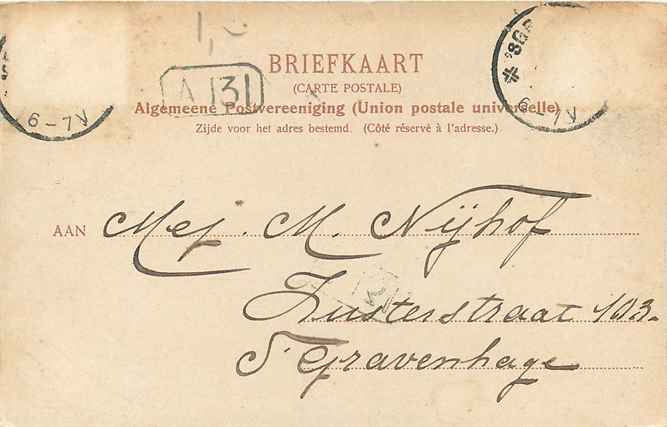 1,-
BRIEFKAART
(CARTE POSTALE)
A 131
Algemeene Postvereeniging (Union postale universelle)
6-7V
6-7V
Zijde voor het adres bestemd. (Côté réservé à l'adresse.)
AAN Mej. M. Nijhof
Zusterstraat 103.
S'Gravenhage